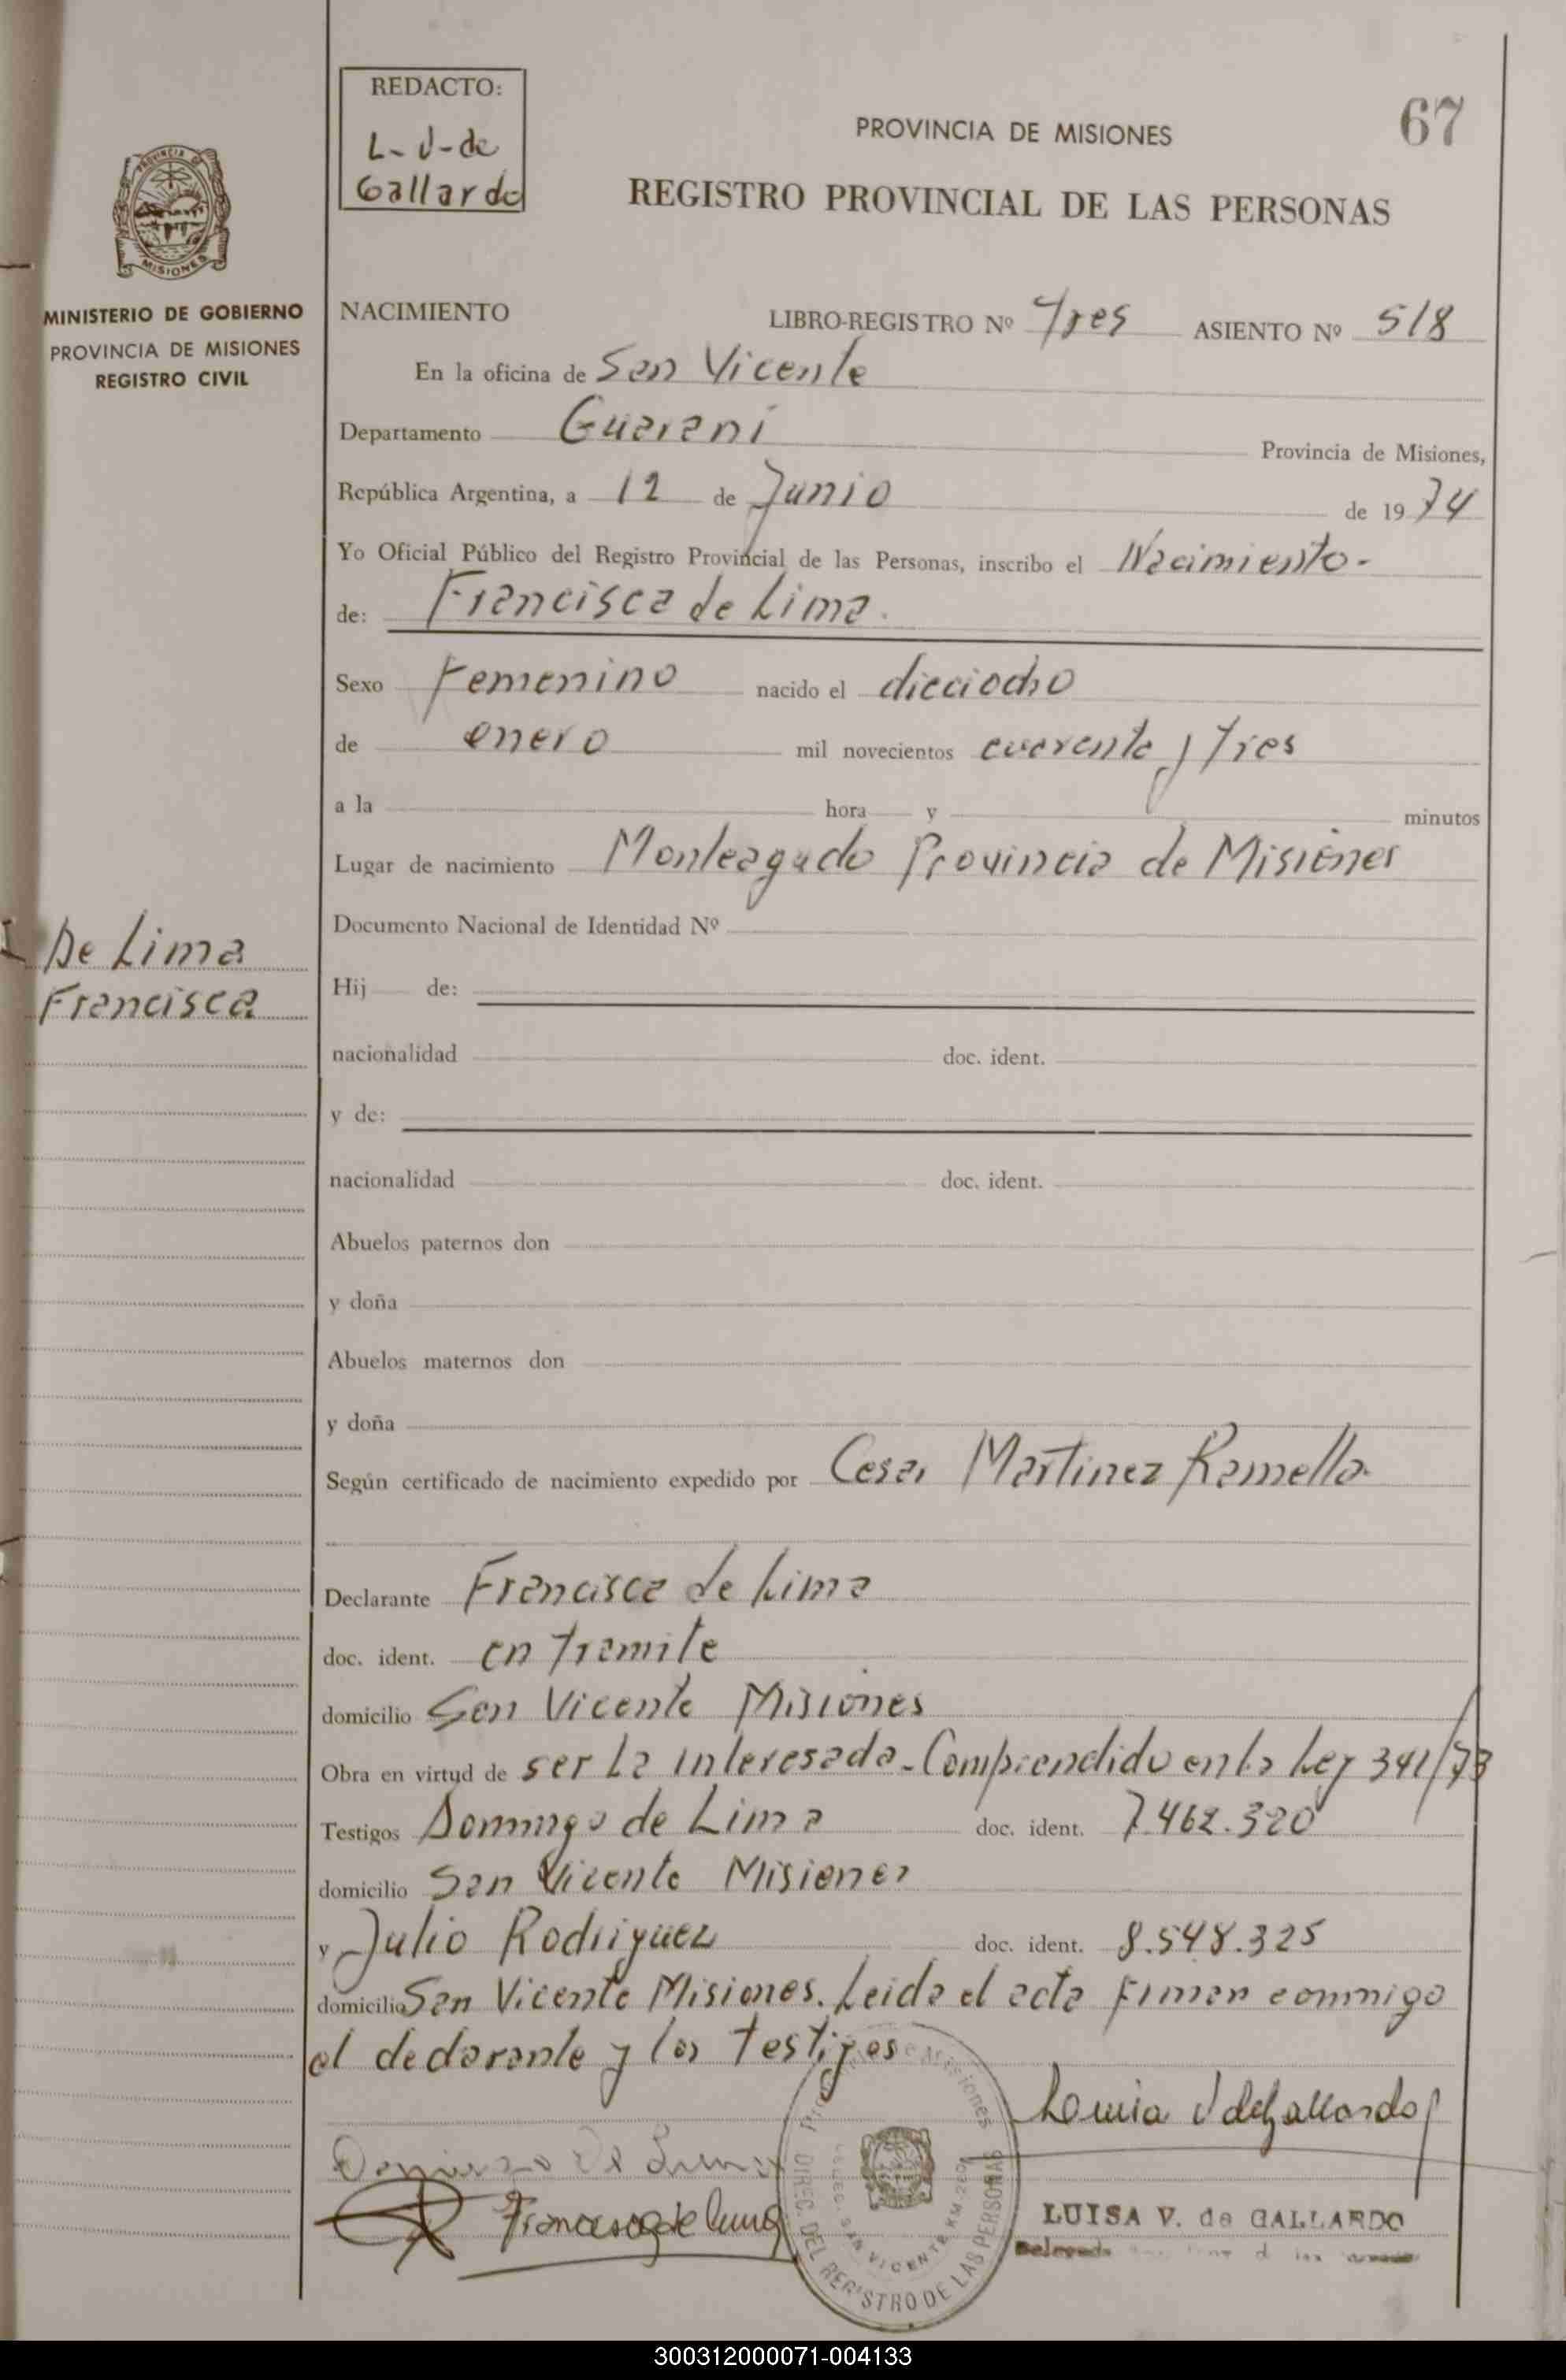 67
REDACTO:
L-V-de
Gallardo
PROVINCIA DE MISIONES
REGISTRO PROVINCIAL DE LAS PERSONAS
PROVINCIA DE
MISIONES
MINISTERIO DE GOBIERNO
PROVINCIA DE MISIONES
REGISTRO CIVIL
NACIMIENTO LIBRO-REGISTRO Nº Tres ASIENTO Nº 518
En la oficina de San Vicente
Departamento Guarani Provincia de Misiones,
República Argentina, a 12 de Junio de 1974
Yo Oficial Público del Registro Provincial de las Personas, inscribo el Nacimiento-
de: Francisca de Lima.
Sexo Femenino nacido el dieciocho
de enero mil novecientos cuarenta y Tres
a la hora y minutos
Lugar de nacimiento Monteagudo Provincia de Misiones
Documento Nacional de Identidad Nº
De Lima
Francisca
Hij de:
nacionalidad doc. ident.
y de:
nacionalidad doc. ident.
Abuelos paternos don
y doña
Abuelos maternos don
y doña
Según certificado de nacimiento expedido por Cesar Martinez Ramella
Declarante Francisca de Lima
doc. ident. en Tramite
domicilio San Vicente Misiones
Obra en virtud de ser La interesada-Comprendido en la Ley 341/73
Testigos Domingo de Lima doc. ident. 7.462.320
domicilio San Vicente Misiones
y Julio Rodriguez doc. ident. 8.548.325
domicilio San Vicente Misiones. Leida el acta Firman conmigo
el declarante y los Testigos
Luisa V de Gallardo
Domingo De Lima
Francisca de Lima
Misiones
DIREC. DEL REGISTRO DE LAS PERSONAS
SAN VICENTE KM.
LUISA V. de GALLARDO
300312000071-004133